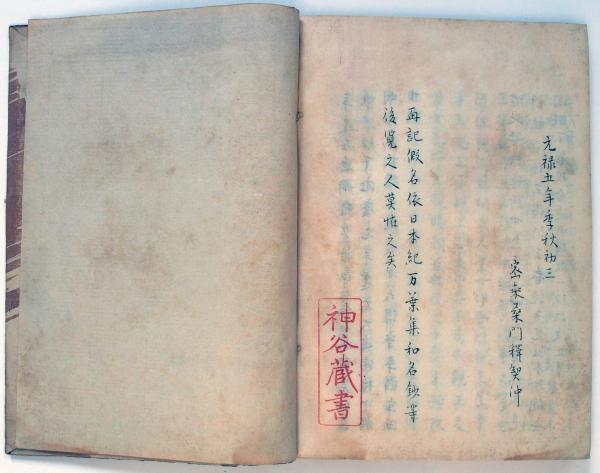 元禄五年季秋初三
密乘桑門釋契沖
再記假名依日本紀万葉集和名鈔等
後覧之人莫怪之矣
神谷蔵書